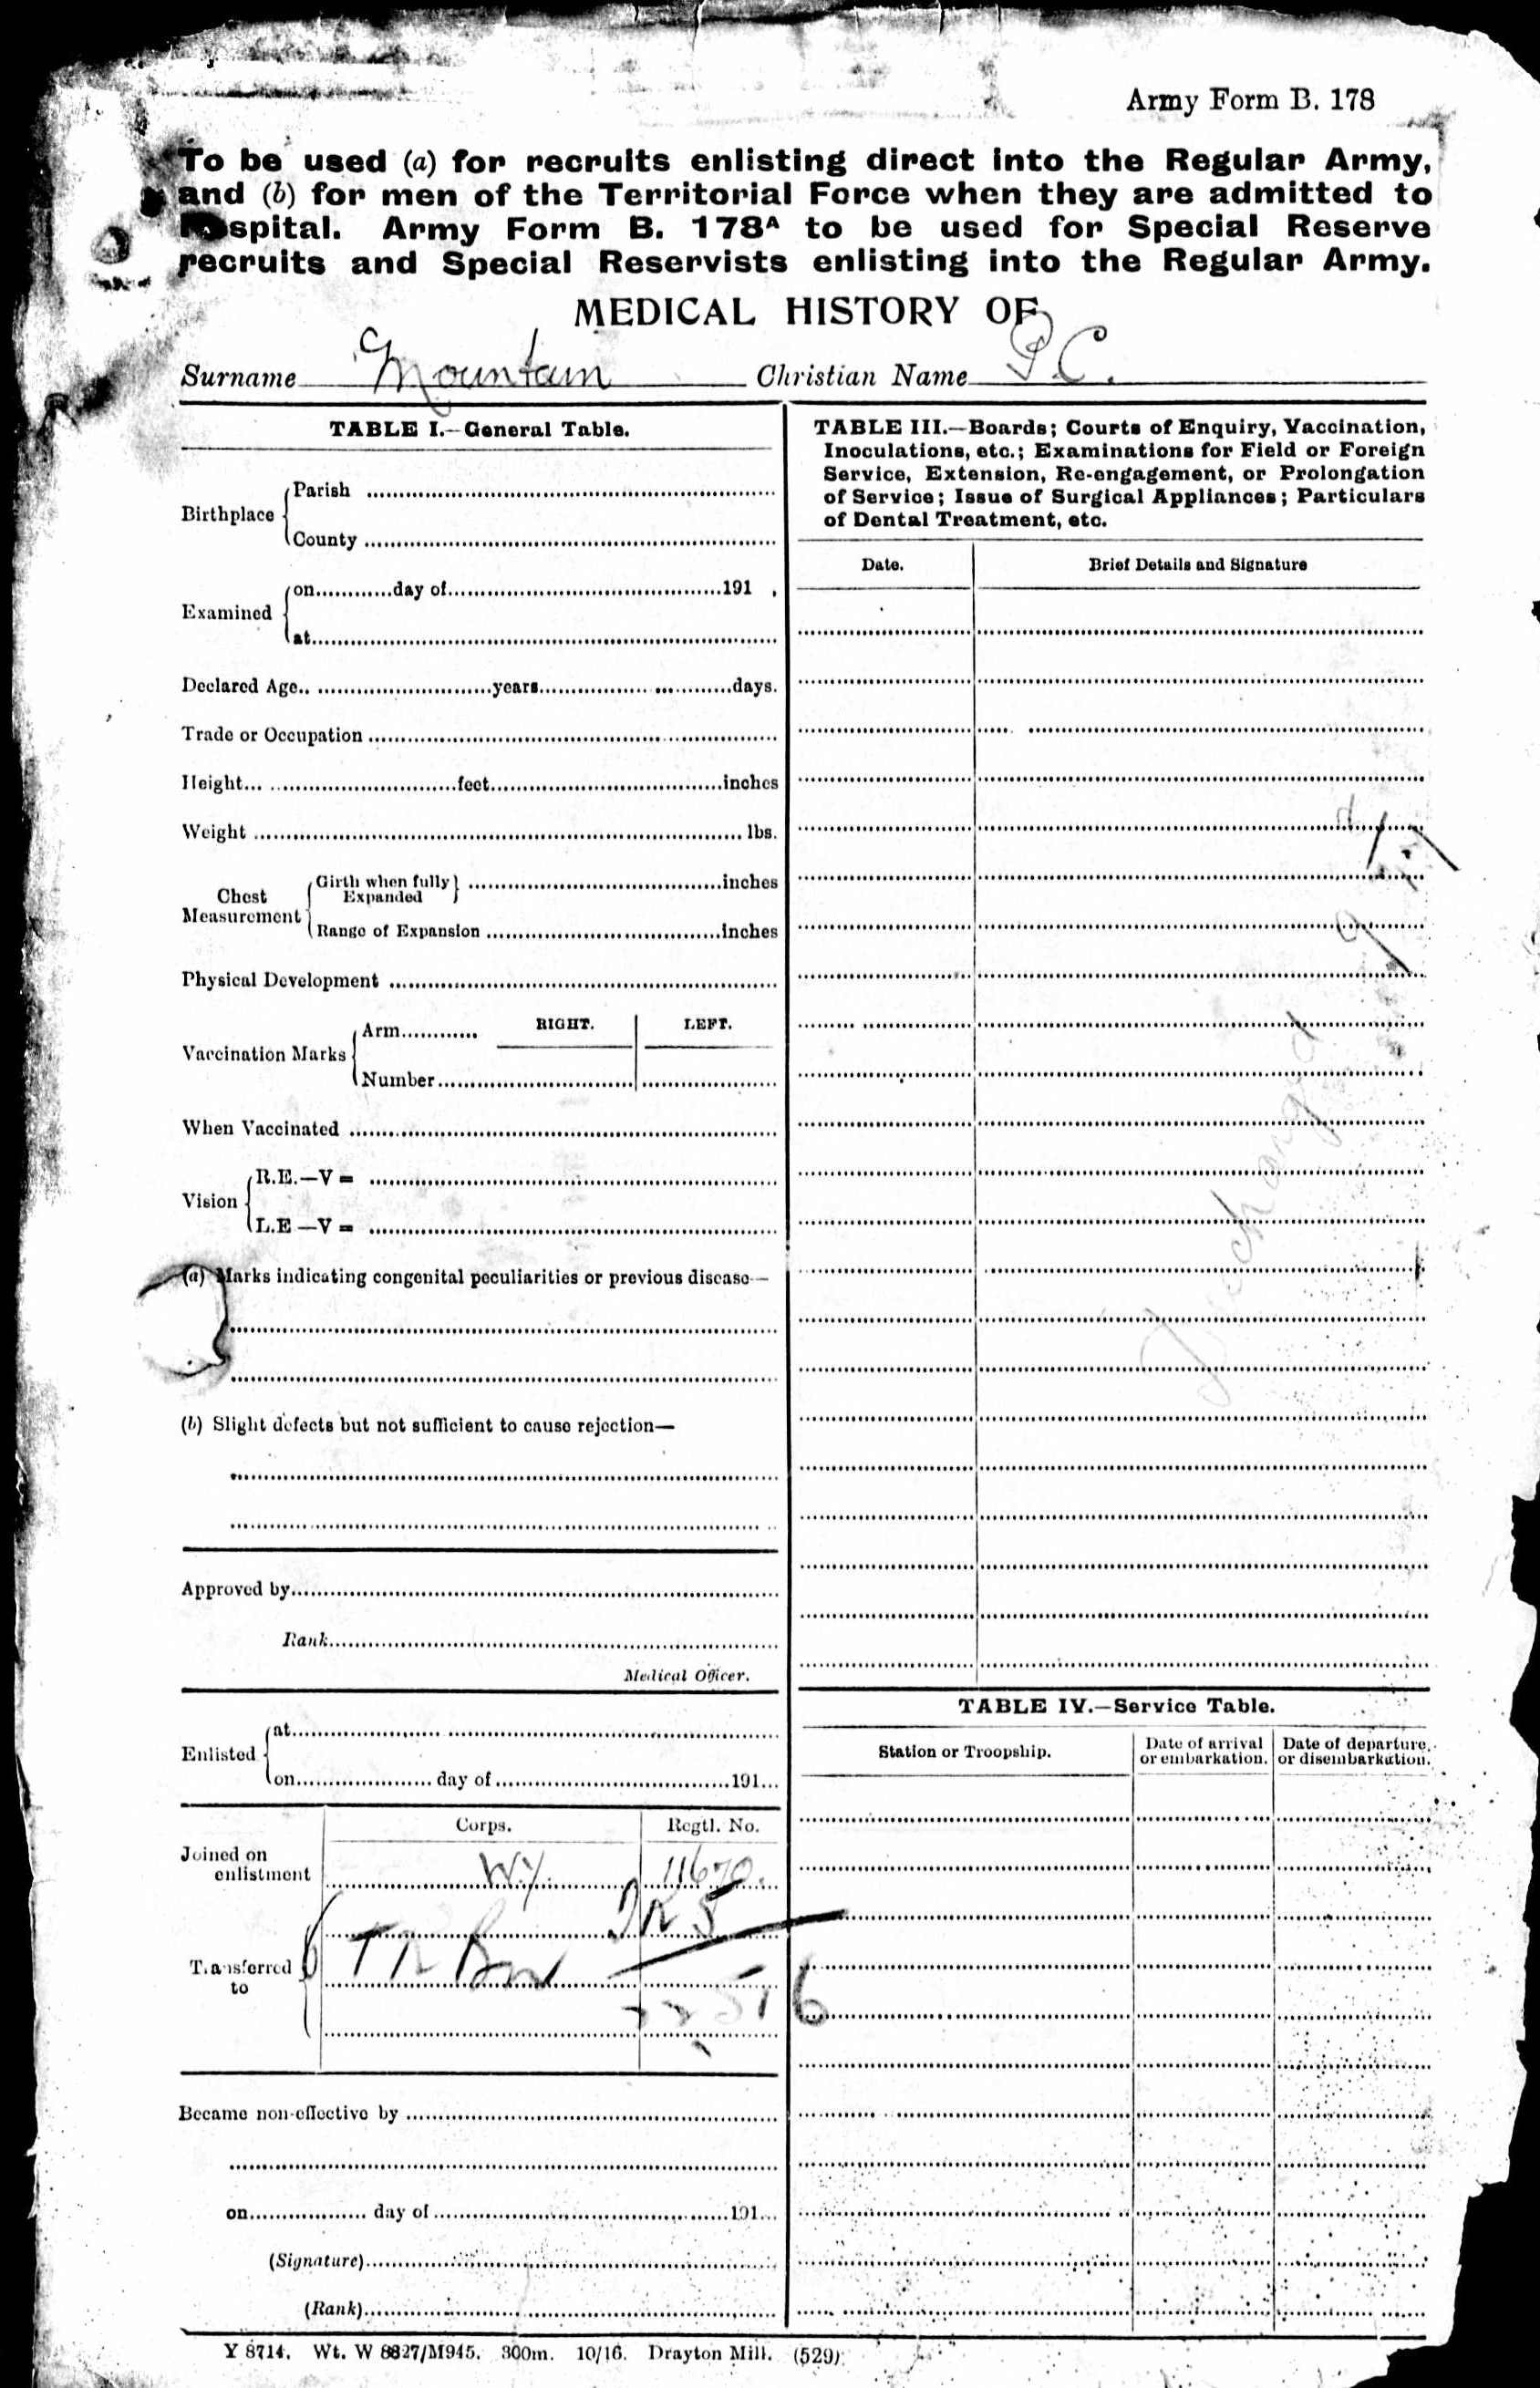 Army Form B. 178
To be used (a) for recruits enlisting direct into the Regular Army,
and (b) for men of the Territorial Force when they are admitted to
hospital. Army Form B. 178A to be used for Special Reserve
recruits and Special Reservists enlisting into the Regular Army.
MEDICAL HISTORY OF
Surname Mountain Christian Name P.C.
TABLE I.—General Table.
Birthplace
Parish
County
Examined
on day of 191
at
Declared Age years days.
Trade or Occupation
Height feet inches
Weight lbs.
Chest Measurement
Girth when fully Expanded inches
Range of Expansion inches
Physical Development
Vaccination Marks
Arm RIGHT. LEFT.
Number
When Vaccinated
Vision
R.E.—V =
L.E —V =
(a) Marks indicating congenital peculiarities or previous disease—
(b) Slight defects but not sufficient to cause rejection—
Approved by
Rank
Medical Officer.
Enlisted
at
on day of 191
Corps. Regtl. No.
Joined on enlistment W.Y. 11670.
Transferred to TR Bn TR 5
22516
Became non-effective by
on day of 191
(Signature)
(Rank)
TABLE III.—Boards; Courts of Enquiry, Vaccination,
Inoculations, etc.; Examinations for Field or Foreign
Service, Extension, Re-engagement, or Prolongation
of Service; Issue of Surgical Appliances; Particulars
of Dental Treatment, etc.
Date. Brief Details and Signature
Discharged
TABLE IV.—Service Table.
Station or Troopship. Date of arrival or embarkation. Date of departure or disembarkation.
Y 8714. Wt. W 8827/M945. 300m. 10/16. Drayton Mill. (529)